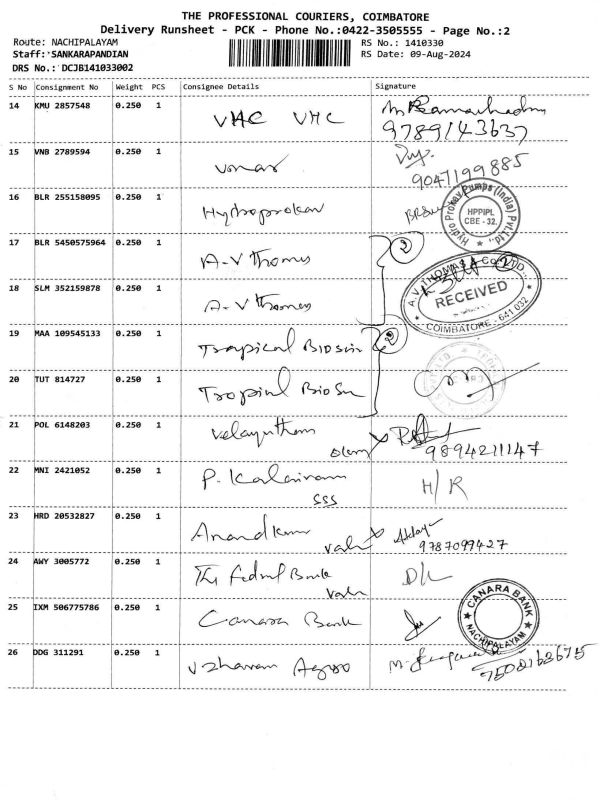 THE PROFESSIONAL COURIERS, COIMBATORE
Delivery Runsheet - PCK - Phone No.:0422-3505555 - Page No.:2
Route: NACHIPALAYAM
RS No.: 1410330
Staff: SANKARAPANDIAN
RS Date: 09-Aug-2024
DRS No.: DCJB141033002
S No Consignment No Weight PCS Consignee Details Signature
14 KMU 2857548 0.250 1 VHC VHC
9789143637
15 VNB 2789594 0.250 1
9047199885
16 BLR 255158095 0.250 1
Hydro Prokav Pumps (India) Pvt. Ltd.
HPPIPL
CBE - 32.
17 BLR 5450575964 0.250 1 A.V Thomas 2
18 SLM 352159878 0.250 1 A.V Thomas
A.V. THOMAS & Co. LTD.
RECEIVED
COIMBATORE - 641 032
19 MAA 109545133 0.250 1 Tropical 2
20 TUT 814727 0.250 1 Tropical
21 POL 6148203 0.250 1 Velayutham
9894211147
22 MNI 2421052 0.250 1 P. H/R
SSS
23 HRD 20532827 0.250 1 Anandkumar
9787099427
24 AWY 3005772 0.250 1 The Federal Bank
25 IXM 506775786 0.250 1 Canara Bank
CANARA BANK
NACHIPALAYAM
26 DDG 311291 0.250 1 Uzhavan Agro